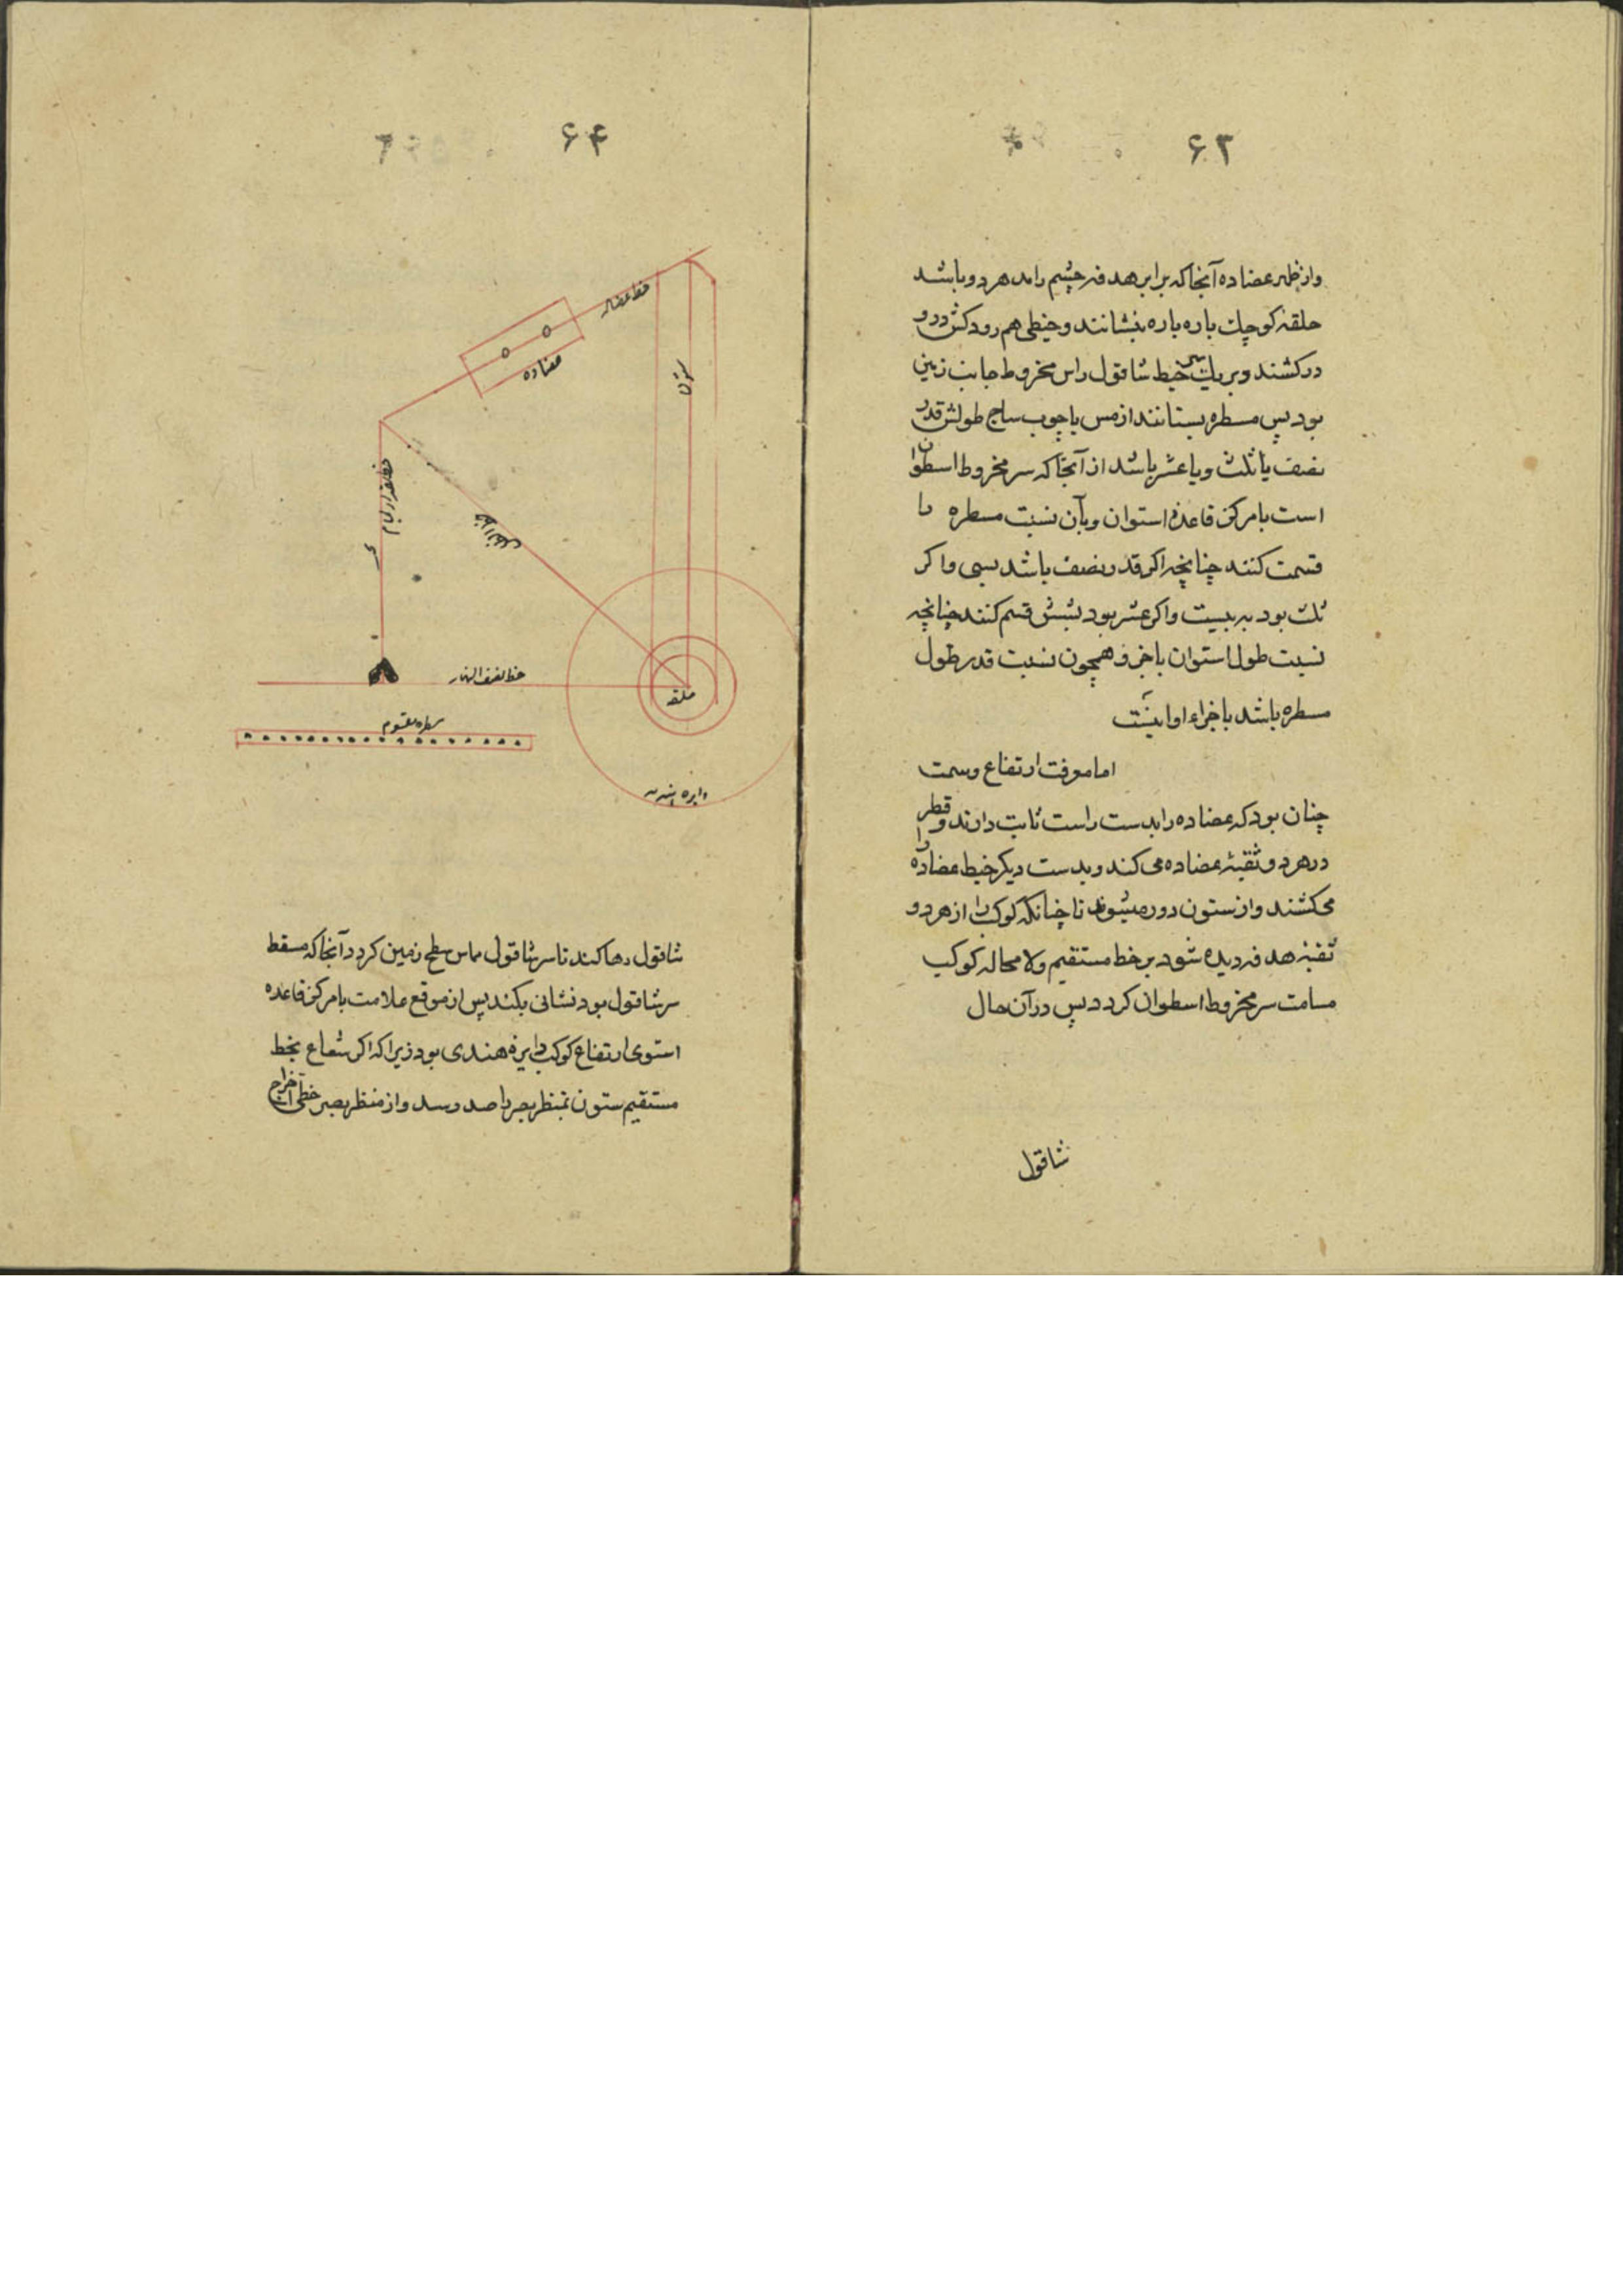 ۶۳
واز ظهر عضاده آنجا که برابر هدفه چشم راصد هر دو باشد
حلقهٔ کوچك باره باره بنشانند وخیطی هم رودکش درو
درکشند وبر یك سر خیط شاقول راس مخروط جانب زمین
بود پس مسطره بستانند از مس یا چوب ساج طولش قدر
نصف یا ثلث ویا عشر باشد از آنجا که سر مخروط اسطوان
است با مرکز قاعدهٔ استوان وبآن نسبت مسطره را
قسمت کنند چنانچه اکر قدر نصف باشد بسی واکر
ثلث بود به بیست واکر عشر بود بشش قسم کنند چنانچه
نسبت طول استوان باجزو همچون نسبت قدر طول
مسطره باشد باجزاء او اینست
اما معرفت ارتفاع وسمت
چنان بود که عضاده را بدست راست ثابت دارند وقطر را
در هر دو ثقبهٔ عضاده می کند وبدست دیکر خیط عضاده
می کشند واز ستون دور میشوند تا چنانکه کوکب را از هر دو
ثقبهٔ هدفه دیده شود بر خط مستقیم ولا محاله کوکب
مسامت سر مخروط اسطوان کردد پس در آن حال
شاقول
۶۴
خط عضاده
عضاده
ستون
خط نصف النهار
حلقه
مسطره مقسوم
دایره هندیه
شاقول رها کند تا سر شاقول مماس سطح زمین کردد آنجا که مسقط
سر شاقول بود نشانی بکند پس از موقع علامت با مرکز قاعده
استوی ارتفاع کوکب دایرهٔ هندی بود زیرا که اکر شعاع بخط
مستقیم ستون بمنظر بصر راصد رسد واز منظر بصر خطی اخراج